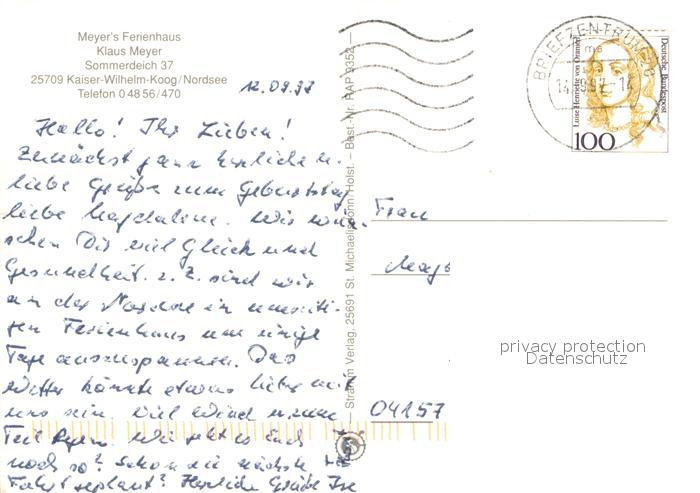 Meyer's Ferienhaus
Klaus Meyer
Sommerdeich 37
25709 Kaiser-Wilhelm-Koog/Nordsee
Telefon 0 48 56/470
12.09.97
Hallo! Ihr Lieben!
Zunächst ganz herzliche u.
liebe Grüße zum Geburtstag
liebe Magdalena. Wir wün-
schen Dir viel Glück und
Gesundheit. Z. Z. sind wir
an der Nordsee in
Ferienhaus um einige
Tage auszuspannen. Das
Wetter könnte etwas lieber mit
uns sein. Viel Wind u. zum
Teil Regen. Wie geht es Euch
noch so? Schon die nächste
Fahrt geplant? Herzliche Grüße
Stramm Verlag, 25691 St. Michaelisdonn/Holst. – Best.-Nr. RAP 9352
BRIEFZENTRUM
Luise Henriette von Oranien
Deutsche Bundespost
100
Frau
Magd
04157
privacy protection
Datenschutz